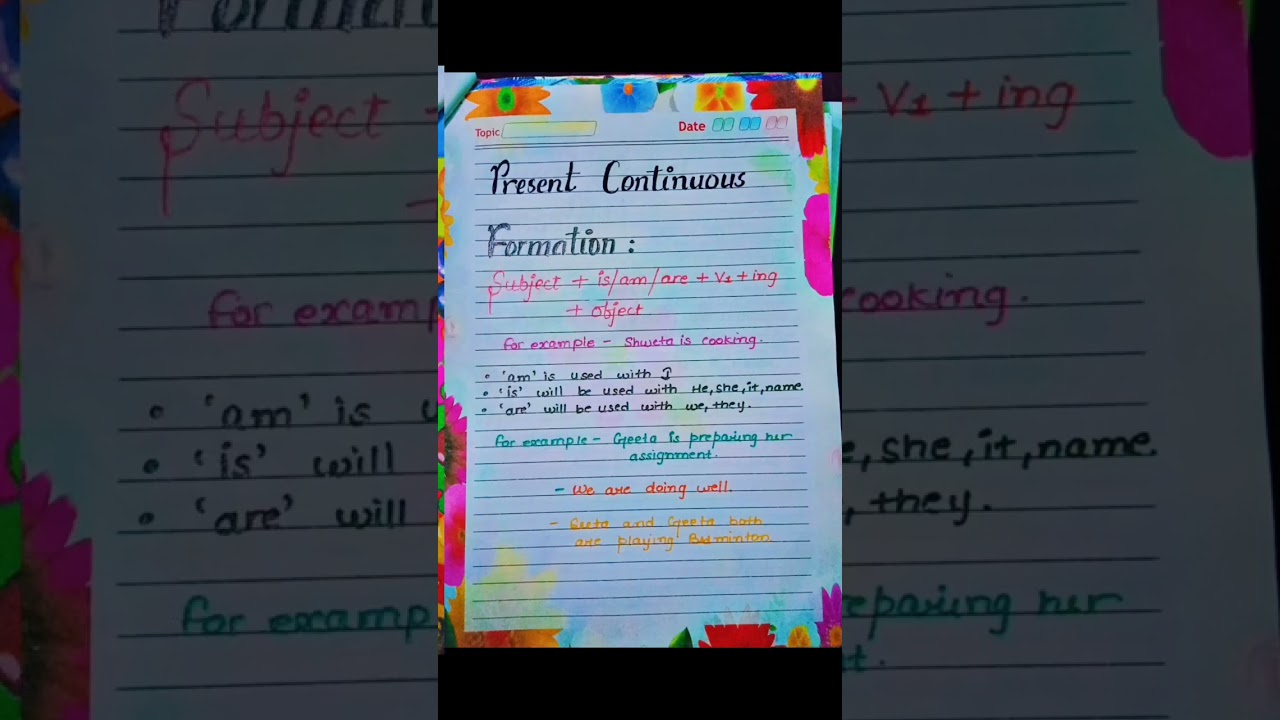 Topic
Date
Present Continuous
Formation :
Subject + is/am/are + V1 + ing
+ object
for example - Shweta is cooking.
• 'am' is used with I
• 'is' will be used with He, she, it, name.
• 'are' will be used with we, they.
for example - Geeta is preparing her
assignment.
- We are doing well.
- Seeta and Geeta both
are playing